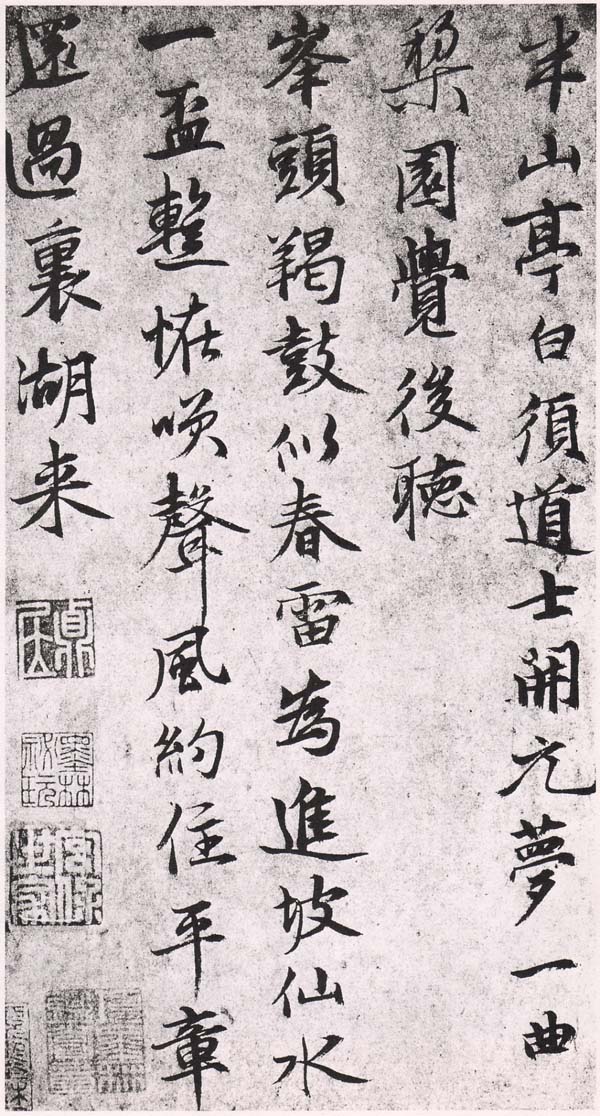 半山亭白須道士開元夢一曲
梨園覺後聽
峯頭羯鼓似春雷為進坡仙水
一盃整恠唤聲風約住平章
還過裏湖来
墨林秘玩